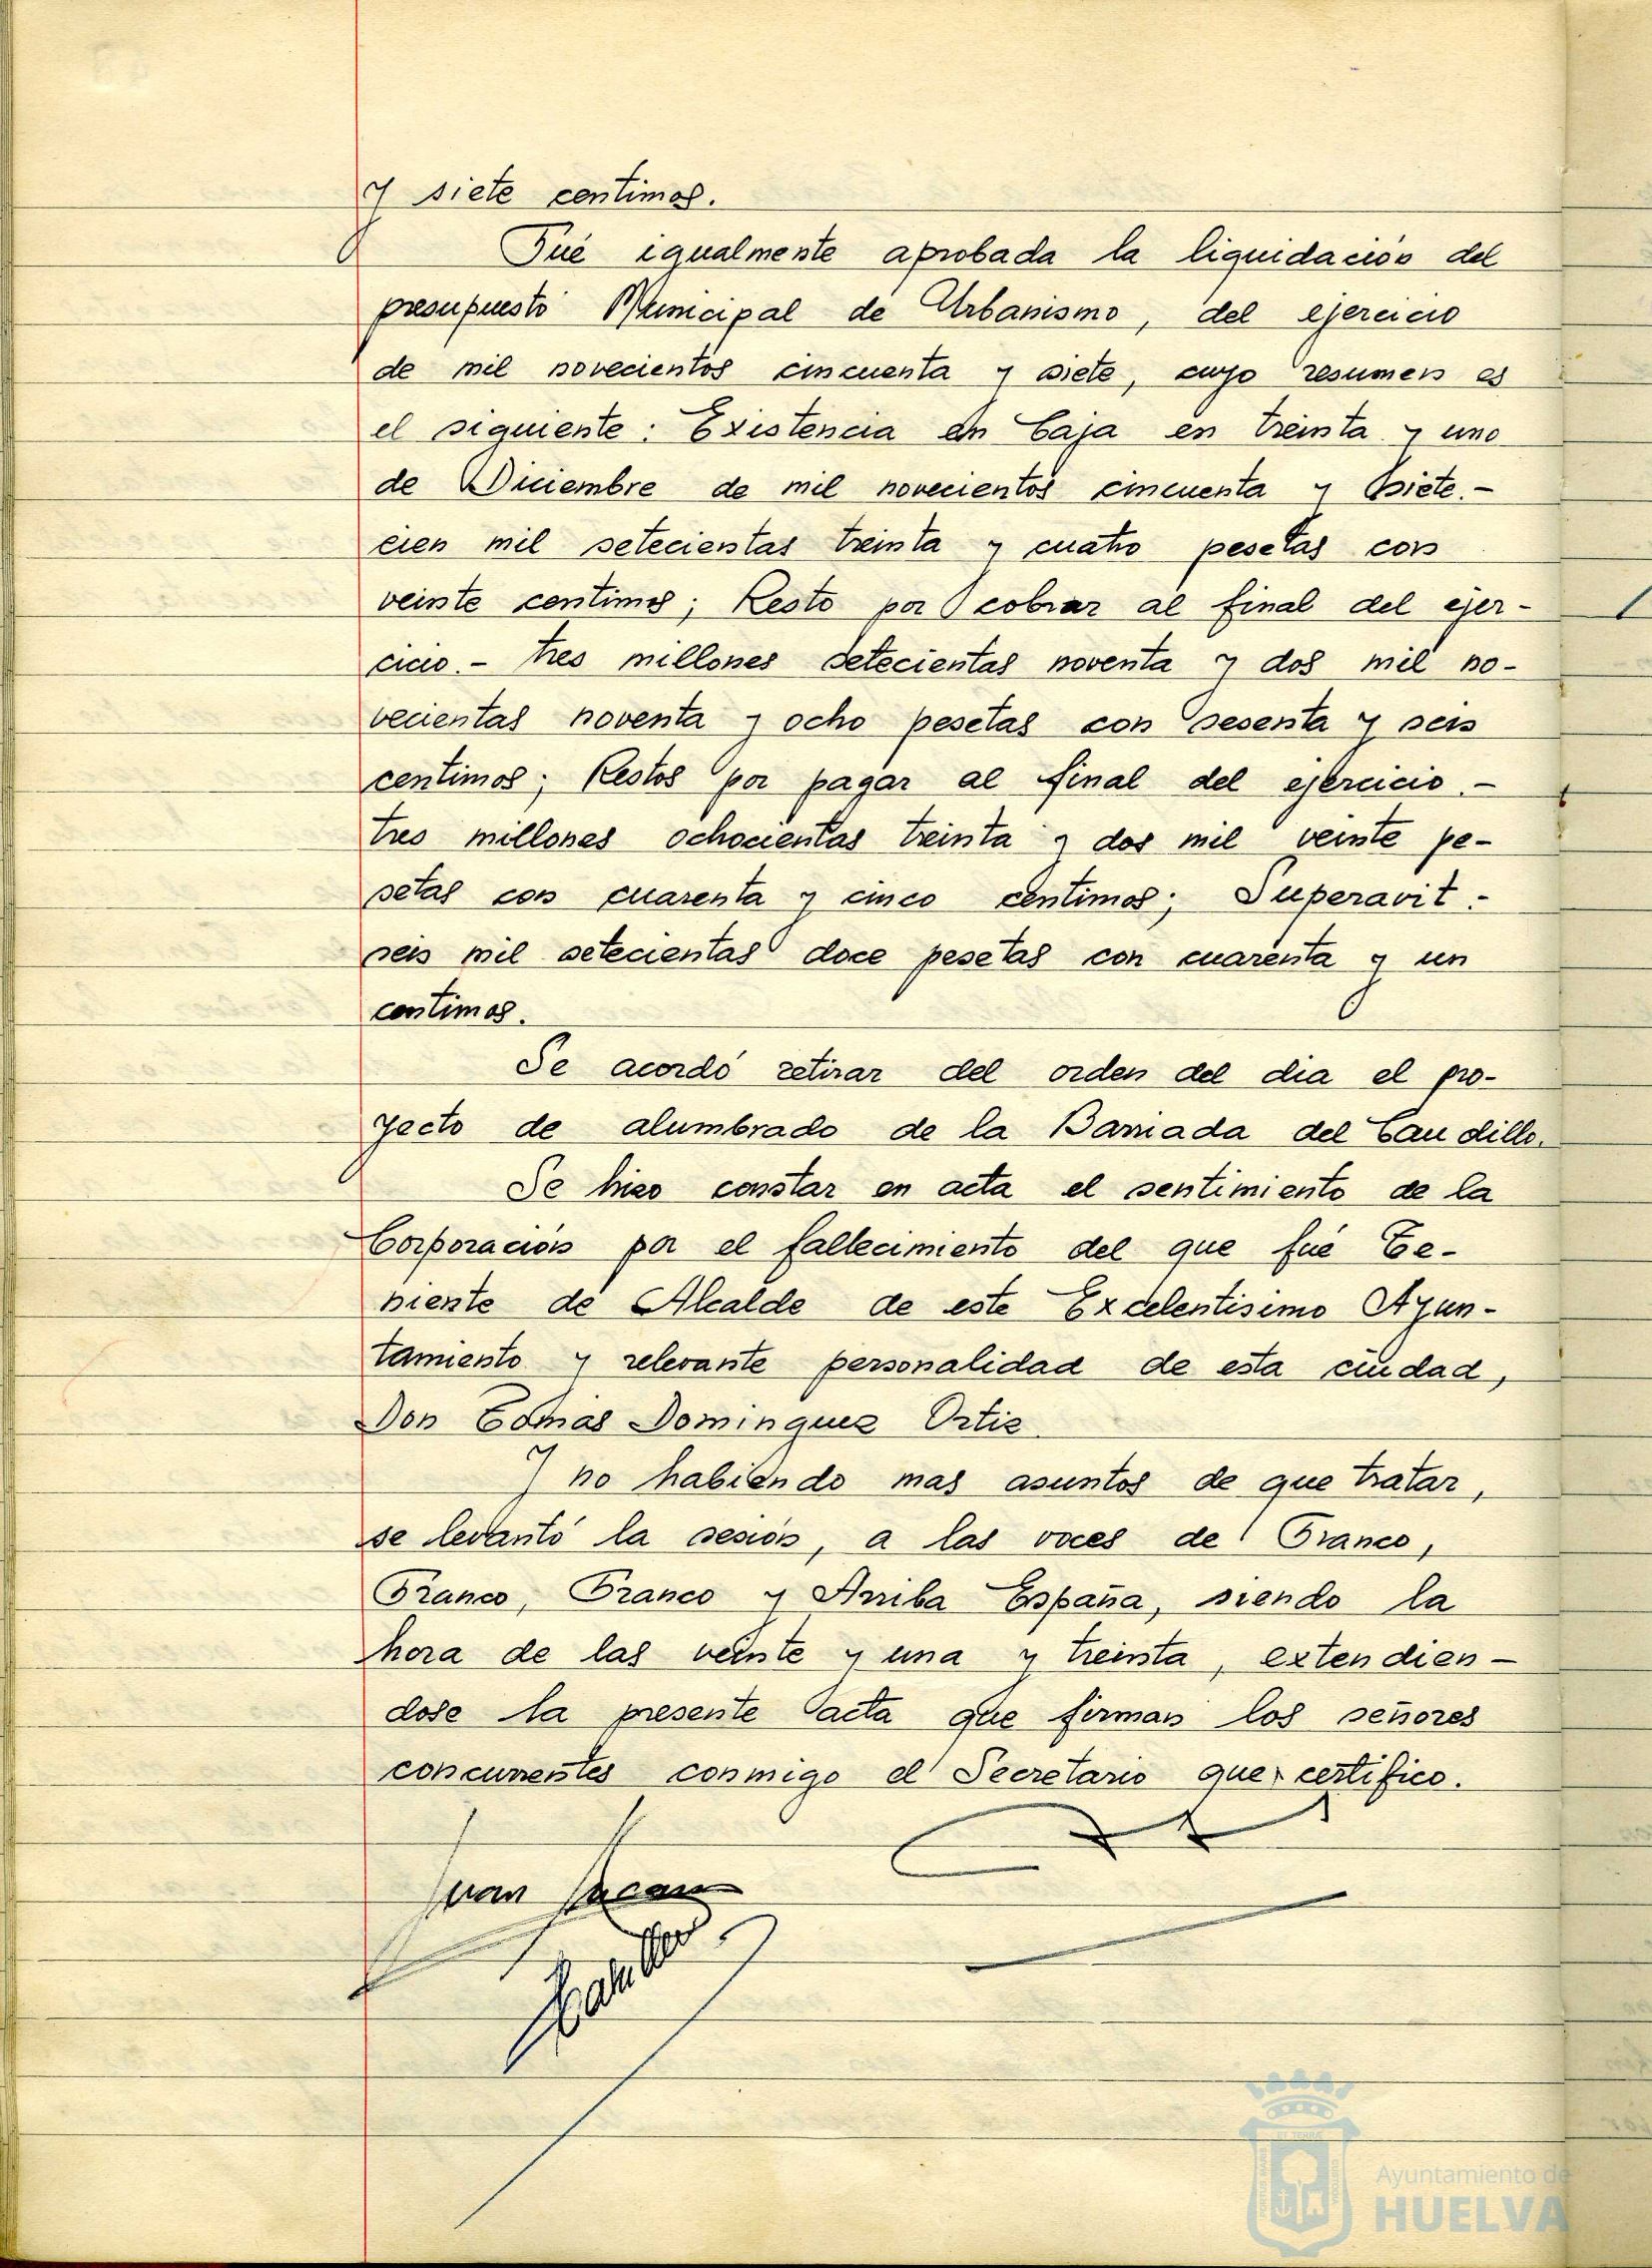 y siete centimos.
Fué igualmente aprobada la liquidación del
presupuesto Municipal de Urbanismo, del ejercicio
de mil novecientos cincuenta y siete, cuyo resumen es
el siguiente: Existencia en Caja en treinta y uno
de Diciembre de mil novecientos cincuenta y siete.-
cien mil setecientas treinta y cuatro pesetas con
veinte centimos; Resto por cobrar al final del ejer-
cicio.- tres millones setecientas noventa y dos mil no-
vecientas noventa y ocho pesetas con sesenta y seis
centimos; Restos por pagar al final del ejercicio.-
tres millones ochocientas treinta y dos mil veinte pe-
setas con cuarenta y cinco centimos; Superavit.-
seis mil setecientas doce pesetas con cuarenta y un
centimos.
Se acordó retirar del orden del dia el pro-
yecto de alumbrado de la Barriada del Caudillo.
Se hizo constar en acta el sentimiento de la
Corporación por el fallecimiento del que fué Te-
niente de Alcalde de este Excelentisimo Ayun-
tamiento y relevante personalidad de esta ciudad,
Don Tomas Dominguez Ortiz.
Y no habiendo mas asuntos de que tratar,
se levantó la sesión, a las voces de ¡Franco,
Franco, Franco y Arriba España, siendo la
hora de las veinte y una y treinta, extendien-
dose la presente acta que firman los señores
concurrentes conmigo el Secretario que certifico.
Juan
Ayuntamiento de
HUELVA